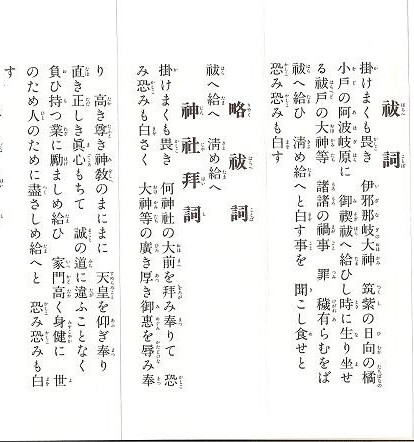 祓詞
掛けまくも畏き　伊邪那岐大神　筑紫の日向の橘
小戸の阿波岐原に　御禊祓へ給ひし時に生り坐せ
る祓戸の大神等　諸諸の禍事　罪　穢有らむをば
祓へ給ひ　清め給へと白す事を　聞こし食せと
恐み恐みも白す
略祓詞
祓へ給へ　清め給へ
神社拜詞
掛けまくも畏き　何神社の大前を拜み奉りて　恐
み恐みも白さく　大神等の廣き厚き御惠を辱み奉
り　高き尊き神敎のまにまに　天皇を仰ぎ奉り
直き正しき眞心もちて　誠の道に違ふことなく
負ひ持つ業に勵ましめ給ひ　家門高く身健に　世
のため人のために盡さしめ給へと　恐み恐みも白
す